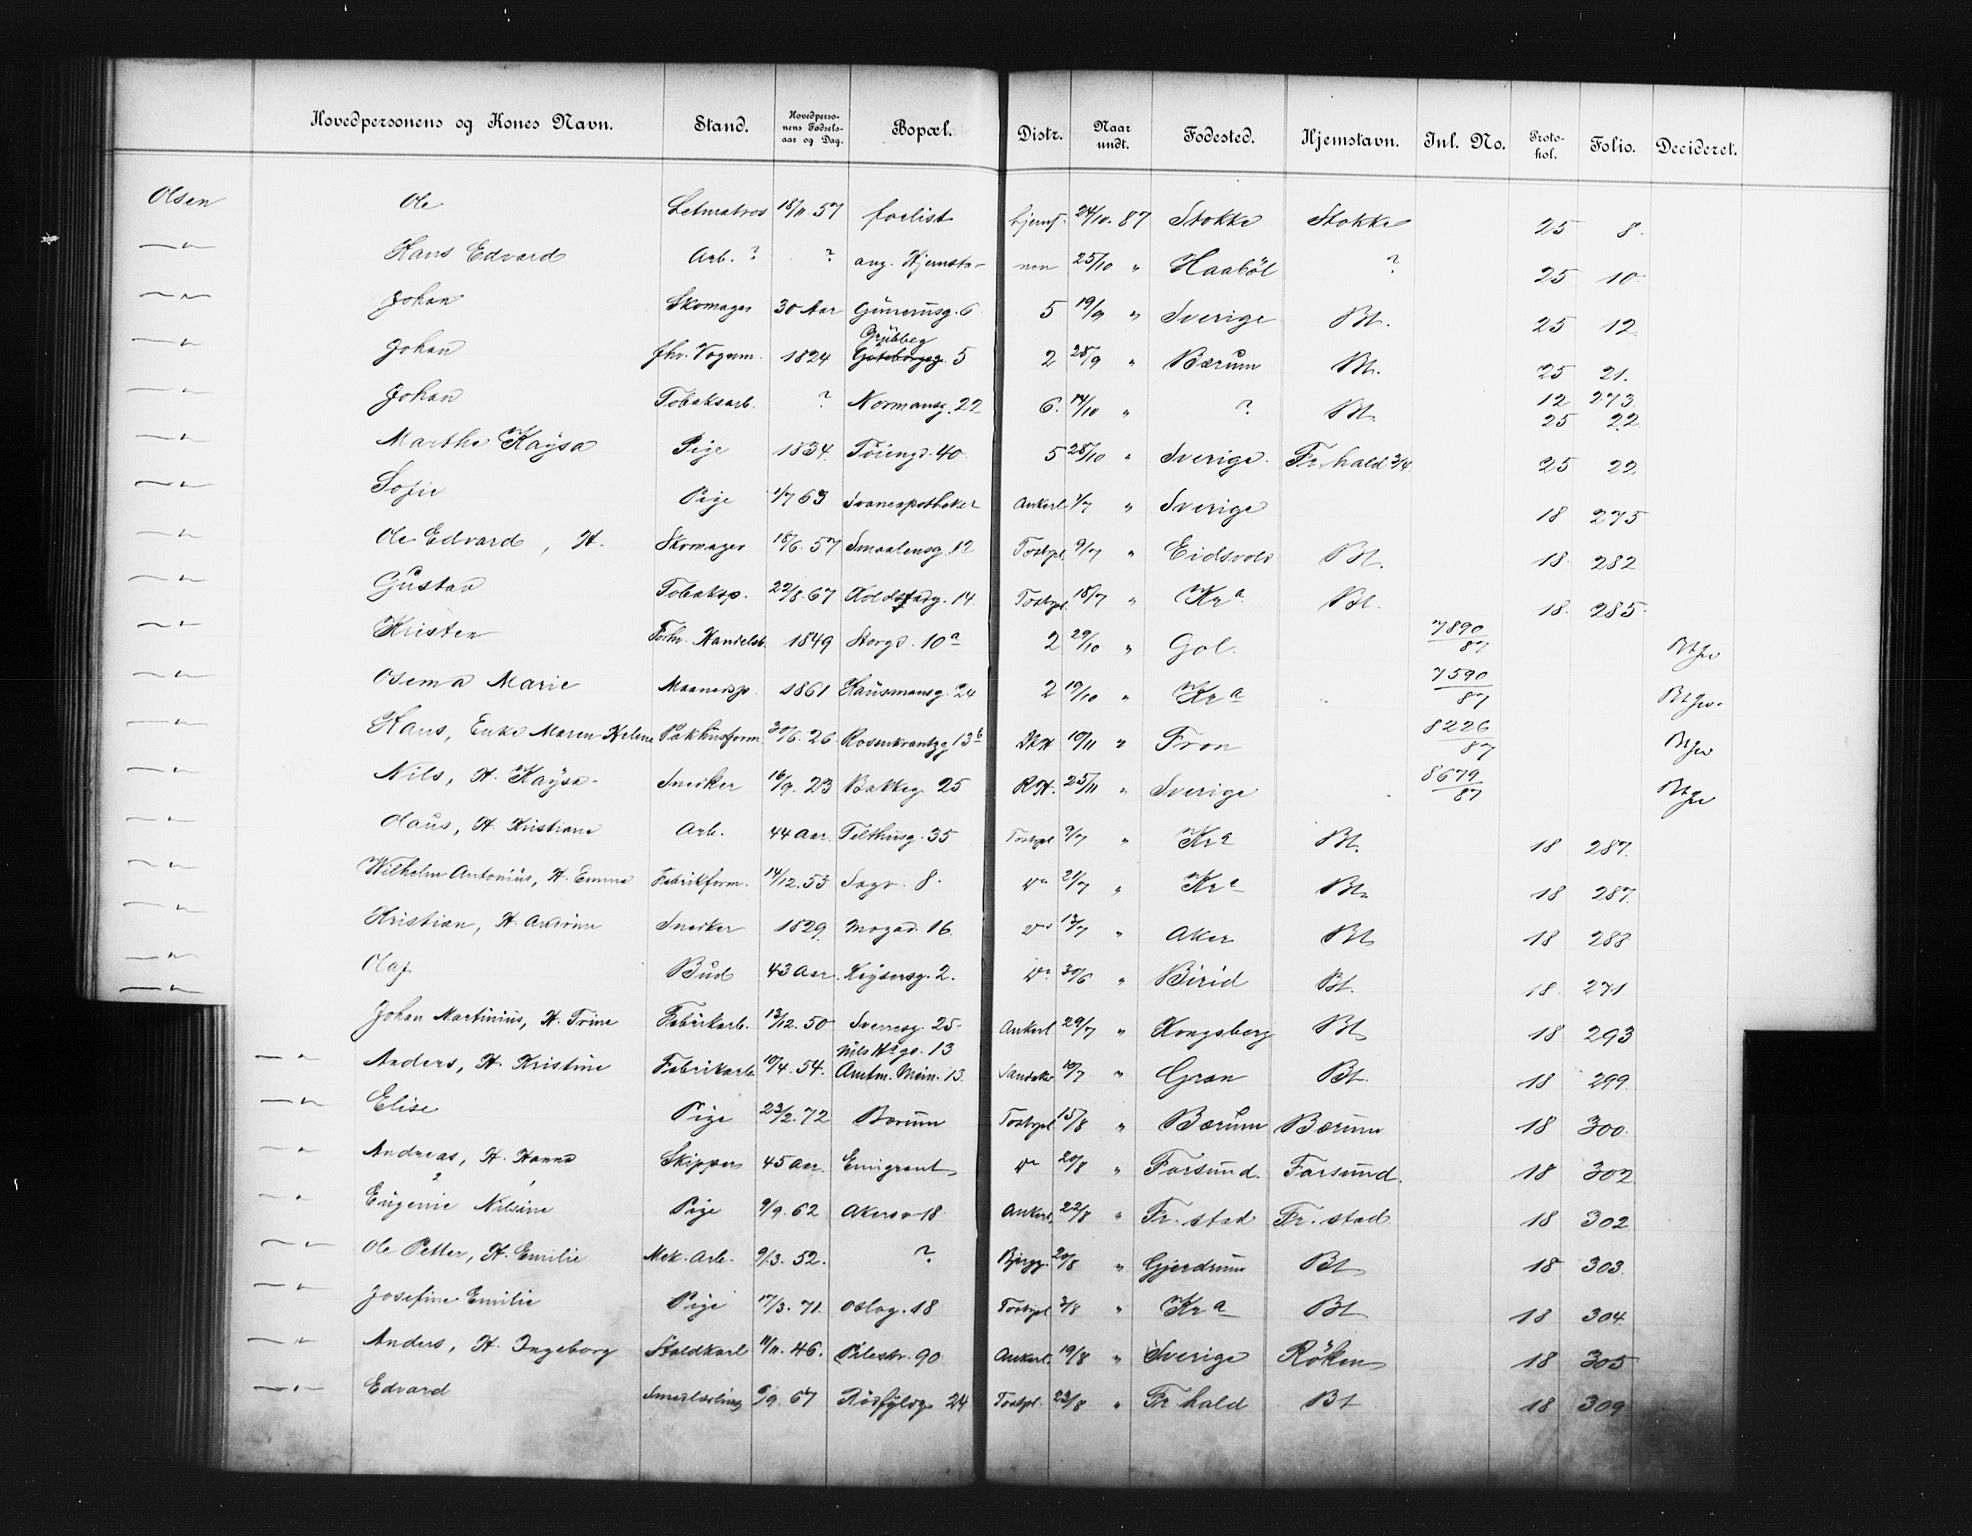 Hovedpersonens og Kones Navn. Stand. Hovedpersonens Fødselsaar og Dag. Bopæl. Distr. Naar undt. Fødested. Hjemstavn. Inl. No. Protohol. Folio. Decideret.
Olsen Ole Letmatros 18/11 57 forlist hjemf. 24/10 87 Stokke Stokke 25 8.
—"— Hans Edvard Arb. ? ? ang. Hjemsta- nen 25/10 " Haaböl ? 25 10.
—"— Johan Skomager 30 Aar Günerusg. 6 5 19/9 " Sverige Bt. 25 12.
Grübbeg
—"— Johan fhv. Vognm. 1824 Göteborgsg. 5 2 28/9 " Bærum Bt. 25 21.
—"— Johan Tobaksarb. ? Normansg. 22 6. 14/10 " ? Bt. 12 273.
25 22
—"— Marthe Kaysa Pige 1834 Töiengd. 40 5 28/10 " Sverige. Fr. hald 3/4 25 22
—"— Sofie Pige 1/7 63 Svanespotheker Ankerl 1/7 " Sverige 18 275
—"— Ole Edvard, H. Skomager 18/6. 57 Smaalensg. 12 Tostpl 9/7 " Eidsvold Bt. 18. 282
—"— Gustav Tobaksp. 22/8. 67 Koldstadg. 14. Tostpl. 18/7 " Kra Bt. 18. 285.
—"— Kristen Forhv. Handelsb. 1849 Storgd. 10a 2 29/10 " Gol. 7890/87
—"— Osema Marie Maanedsp. 1861 Hausmansg. 24 2 19/10 " Kra 7590/87
—"— Hans, Enke Maren Helene Pakhusform 30/6. 26. Rosenkrantzg 13b 10/11 " Fron 8226/87
—"— Nils, H. Kaysa. Snedker 16/9. 23 Bakkeg. 25 RH. 25/11 " Sverige 8679/87
—"— Olaus, H. Kristiane Arb. 44 Aar. Telthusg. 35 Tostpl 9/7 " Kra Bt. 18 287.
—"— Wilhelm Antonius, H. Emma Fabrikform. 14/12. 55 Sagv. 8. Do 21/7 " Kra Bt. 18 287.
—"— Kristian, H. Snedker 1829. Mogad. 16. Do 13/7 " Aker Bt 18 288
—"— Olaf Bud 43 Aar. Keysersg. 2. Do 30/6 " Birid Bt. 18. 271.
—"— Johan Martinius, H. Trine Fabrikarb. 13/12. 50 Sverresg. 25. Ankerl 29/7 " Kongsberg Bt 18 293
13
—"— Anders, H. Kristine Fabrikarb. 10/4. 54. Amtm. Mein. 13. Sandaker 10/7 " Gran Bt. 18 299.
—"— Elise Pige 23/2. 72 Borum Tostpl 15/8 " Bærum Bærum 18 300.
—"— Andreas, H. Hanna Skipper 45 Aar. Emigrant Do 20/8 " Farsund. Farsund. 18 302
—"— Eugenie Nilsine Pige 9/9. 62 Akersv. 18. Ankerl. 22/8 " Fr. stad Fr. stad 18 302
—"— Ole Petter, H. Emilie Mek. Arb. 9/3. 52. ? Bjergg. 20/8 " Gjerdrum Bt 18 303.
—"— Josefine Emilie Pige 17/3. 71. Oslog. 18 Tostpl 3/8 " Kra Bt 18 304.
—"— Anders, H. Ingeborg Staldkarl 11/11. 46. Pilestr. 90. Ankerl. 19/8 " Sverige Röken 18 305
—"— Edvard Smedlærling 6/9. 67 Rödfyldg. 24 Tostpl. 23/8 " Fr hald Bt 18 309